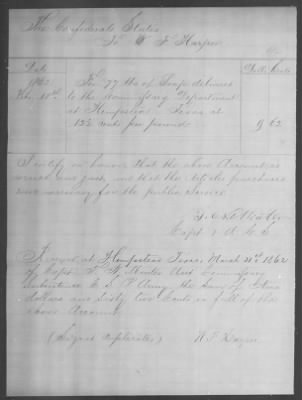 The Confederate States
To W F Harper
Dr
Date
Doll. Cents
1862
For 77 lbs of Soap delivered
to the Commissary Department
at Hempstead Texas at
12½ cents per pound
9 62
I certify on honor that the above Account is
correct and just, and that the Articles purchased
were necessary for the public Service
Capt & A C S
Received at Hempstead Texas, March 31st 1862
of Capt. Asst Commissary
Subsistence C. S. P. Army the Sum of Nine
dollars and Sixty two Cents in full of the
above Account
(Signed Duplicates)
W F Harper